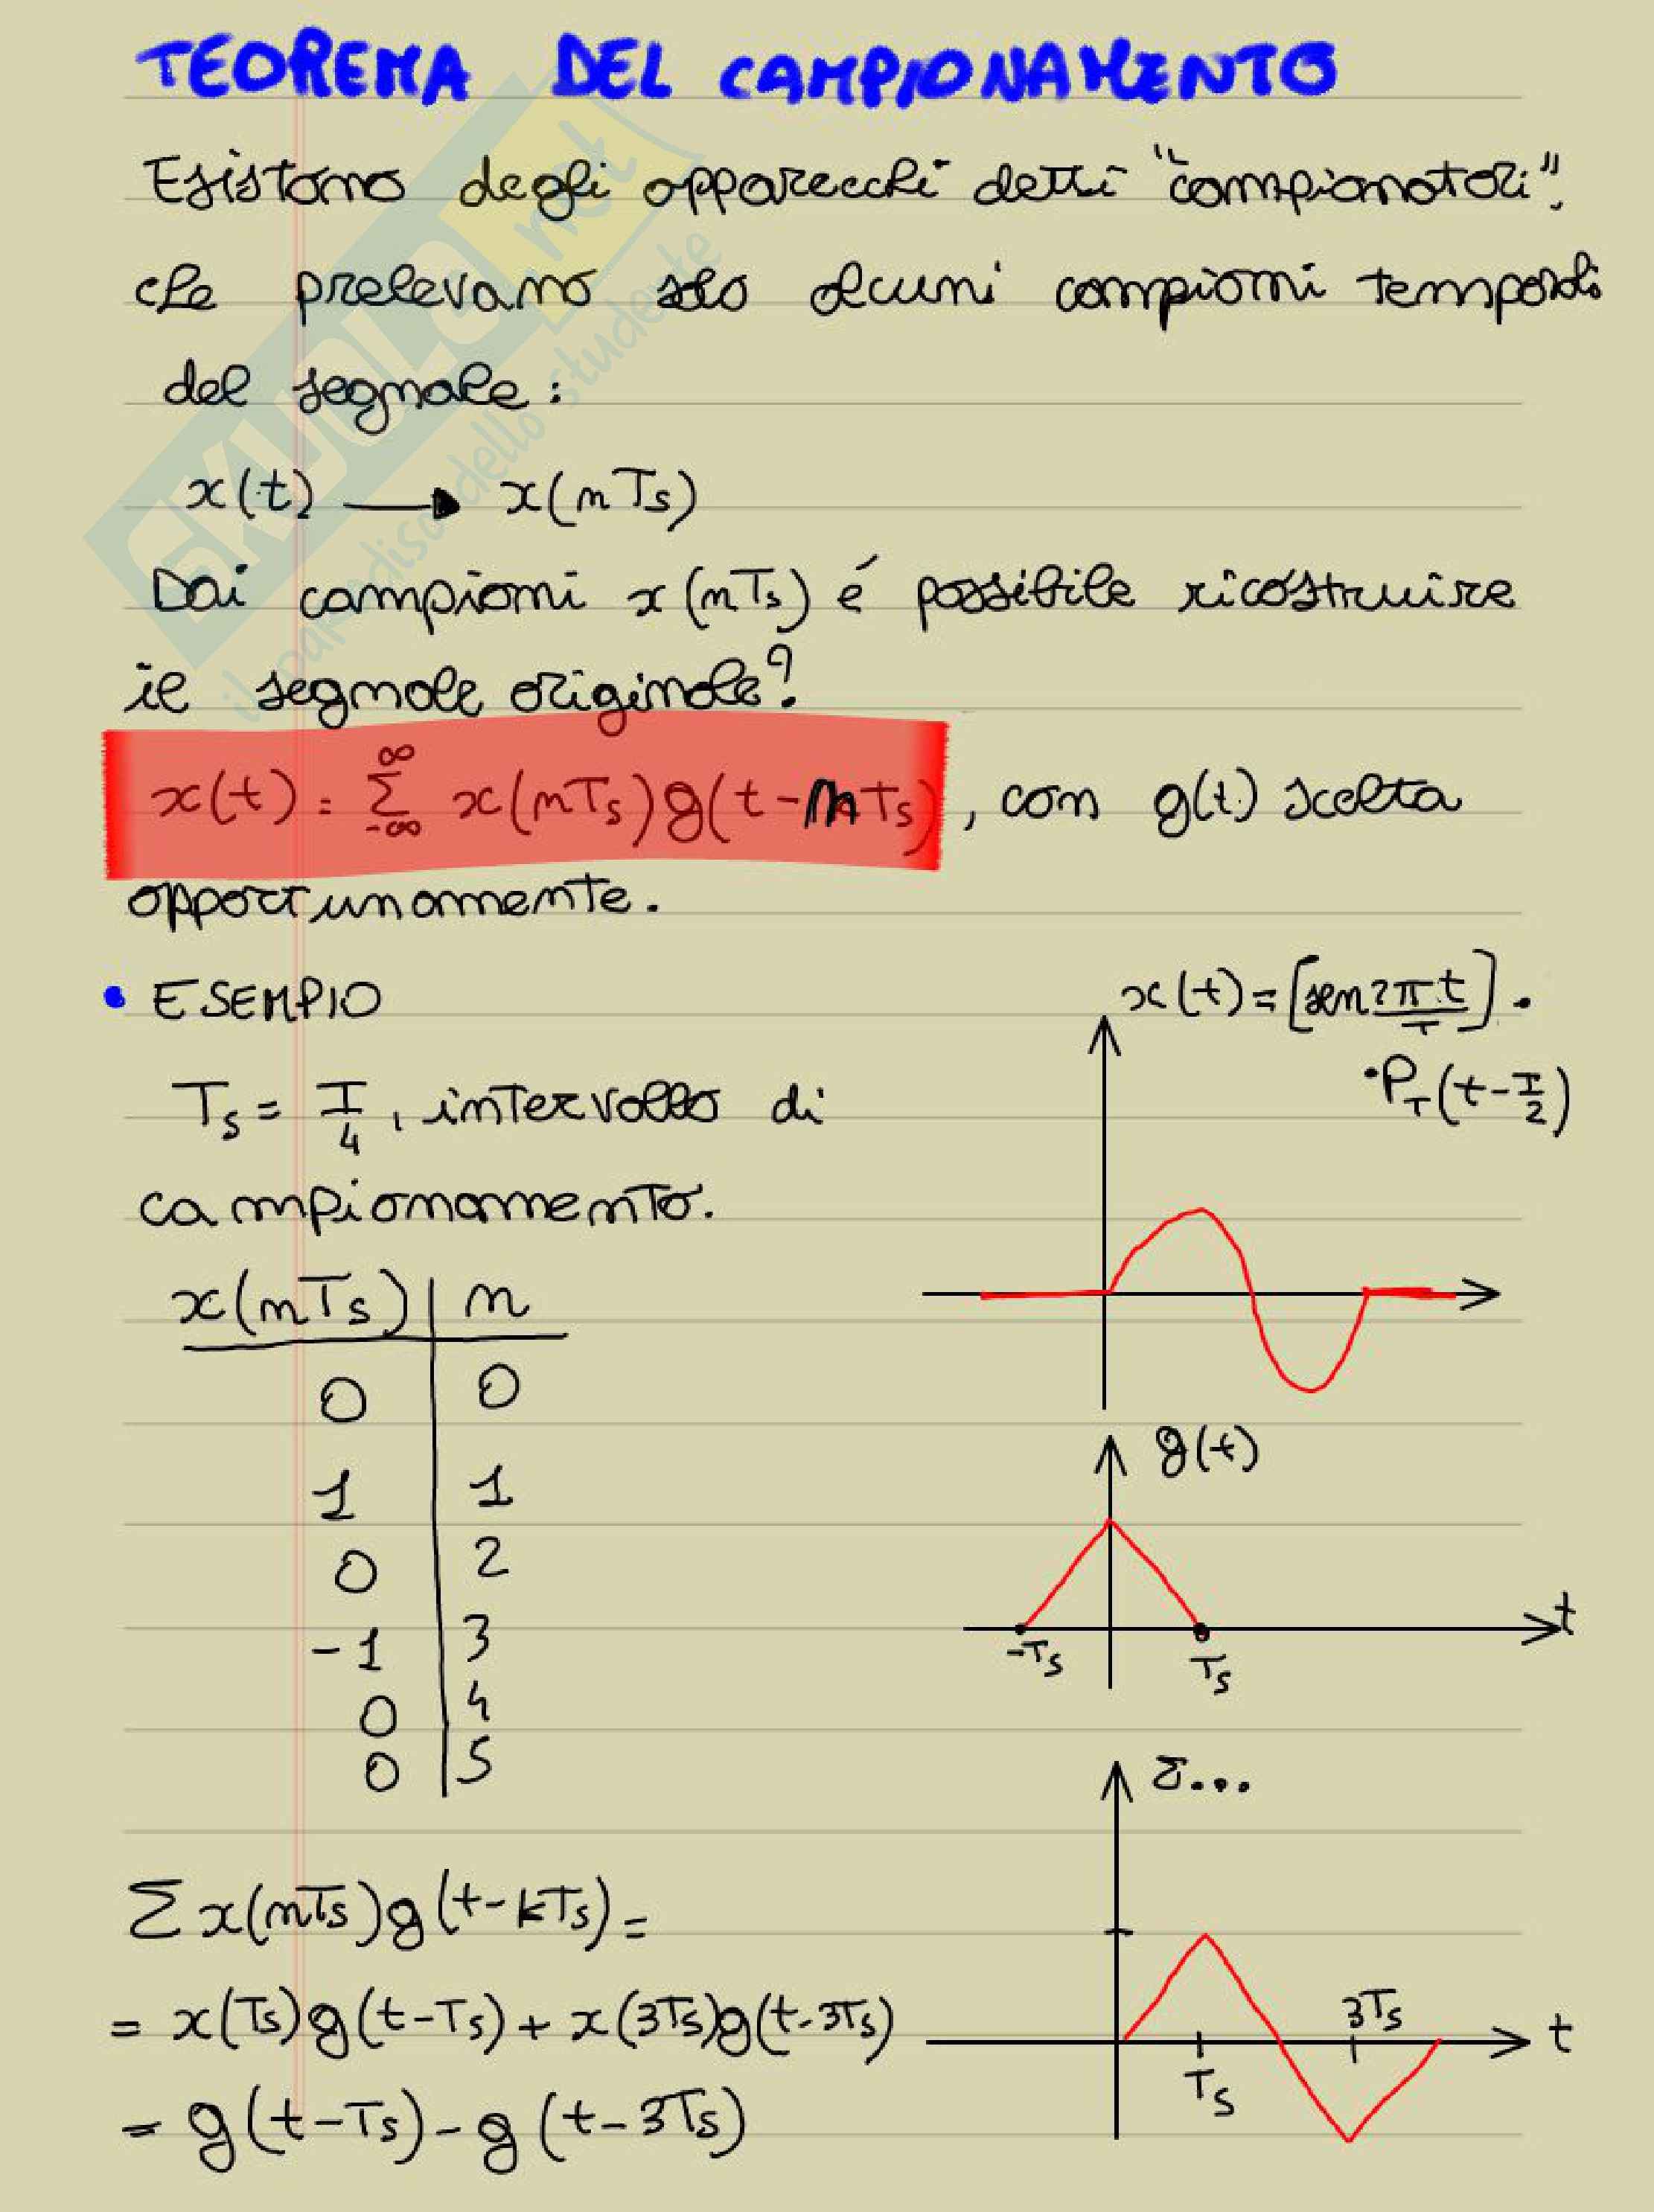 TEOREMA DEL CAMPIONAMENTO
Esistono degli apparecchi detti "campionatori",
che prelevano solo alcuni campioni temporali
del segnale:
x(t) → x(nTs)
Dai campioni x(nTs) é possibile ricostruire
il segnale originale?
x(t) = ∑_{-∞}^{∞} x(nTs)g(t-nTs), con g(t) scelta
opportunamente.
• ESEMPIO
x(t) = [sen 2πt/T] ·
· P_T(t-T/2)
Ts = T/4, intervallo di
campionamento.
x(nTs) | n
0 | 0
1 | 1
0 | 2
-1 | 3
0 | 4
0 | 5
g(t)
t
-Ts
Ts
Σ...
3Ts
t
Ts
∑x(nTs)g(t-kTs)=
= x(Ts)g(t-Ts)+x(3Ts)g(t-3Ts)
= g(t-Ts)-g(t-3Ts)
SKUOLA.net
il paradiso dello studente